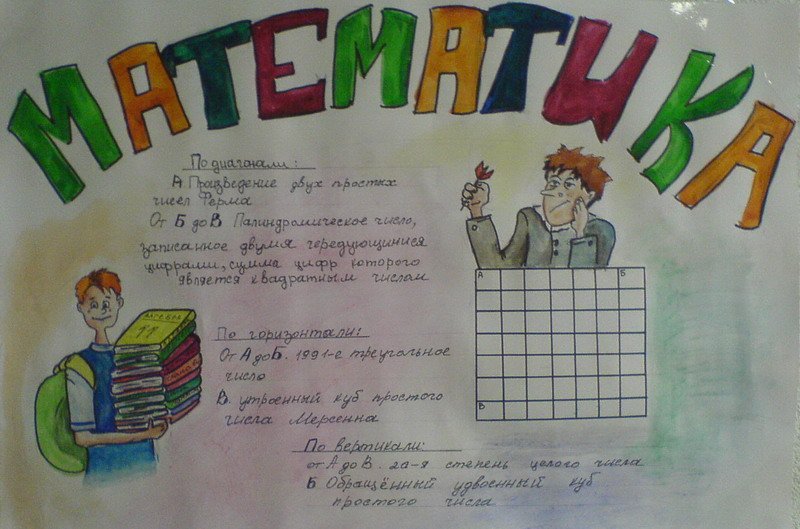 МАТЕМАТИКА
По диагонали:
А Произведение двух простых
чисел Ферма
От Б до В Палиндромическое число,
записанное двумя чередующимися
цифрами, сумма цифр которого
является квадратным числом
АЛГЕБРА
11
А
Б
В
По горизонтали:
От А до Б. 1991-е треугольное
число
В. утроенный куб простого
числа Мерсенна
По вертикали:
от А до В. 2а-я степень целого числа
Б Обращённый удвоенный куб
простого числа